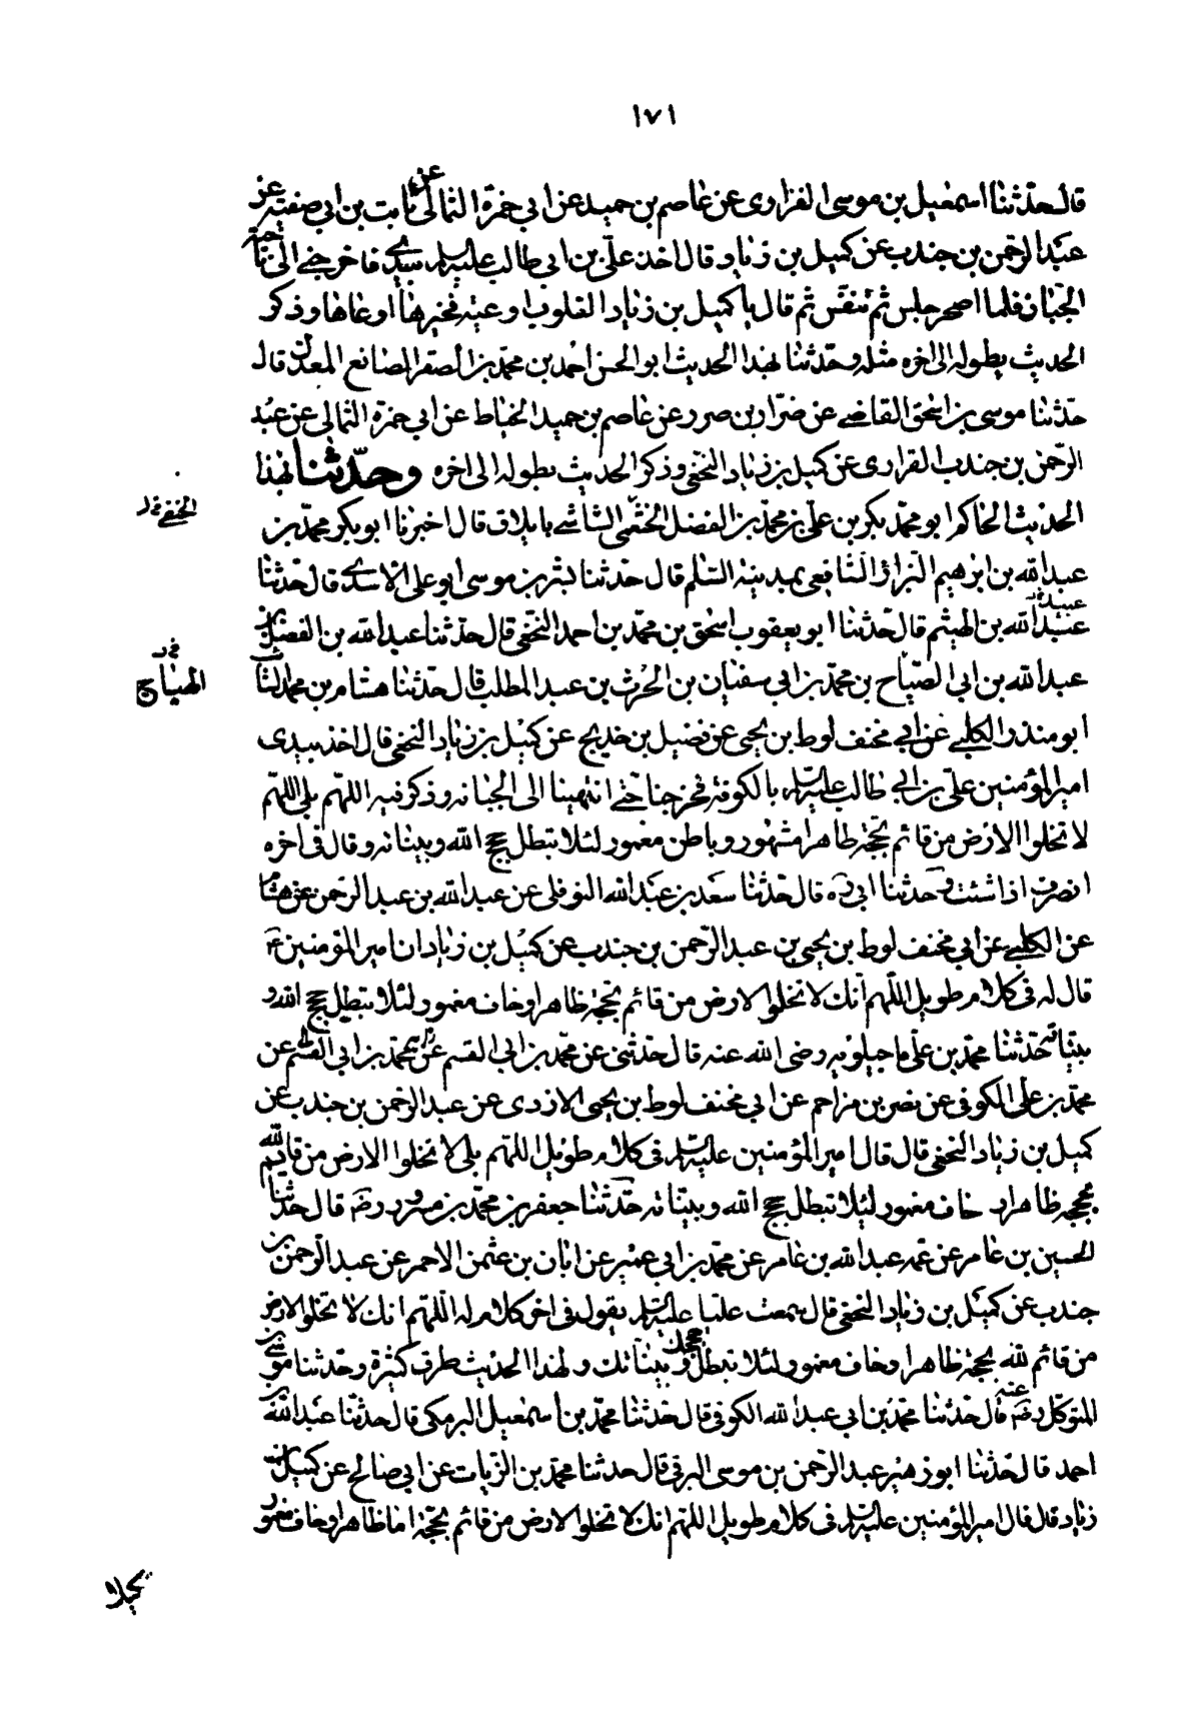 ١٧١
قال حدّثنا اسمعيل بن موسى الفزارى عن عاصم بن حميد عن ابي حمزة الثمالى عن ثابت بن ابي صفيّه عن
عبد الرحمن بن جندب عن كميل بن زياد قال اخذ علىّ بن ابي طالب عليه السلم بيدى فاخرجنى الى ناحية
الجبّان فلما اصحر جلس ثم تنفّس ثم قال يا كميل بن زياد القلوب اوعية فخيرها اوعاها وذكر
الحديث بطوله الى اخره مثله وحدّثنا بهذا الحديث ابو الحسن احمد بن محمّد بن الصقر الصانع المعدل قال
حدّثنا موسى بن اسحق القاضى عن ضرّار بن صرد عن عاصم بن حميد الخياط عن ابي حمزة الثمالى عن عبد
الرحمن بن جندب الفزارى عن كميل بن زياد النخعى وذكر الحديث بطوله الى اخره وحدّثنا بهذا
الحديث الحاكم ابو محمّد بكر بن علىّ بن محمّد بن الفضل الحنفى الشاشى بايلاق قال اخبرنا ابو بكر محمّد بن
الحنفى
عبد الله بن ابرهيم البزاز الشافعى بمدينة السّلم قال حدّثنا بشر بن موسى ابو على الاسدى قال حدّثنا
عبيد
عبد الله بن الهيثم قال حدّثنا ابو يعقوب اسحق بن محمّد بن احمد النخعى قال حدّثنا عبد الله بن الفضل بن
عبد الله بن ابي الصّباح بن محمّد بن ابي سفيان بن الحرث بن عبد المطلب قال حدّثنا هشام بن محمد السّائب
الهياج
ابو منذر الكلبى عن ابي مخنف لوط بن يحيى عن فضيل بن خديج عن كميل بن زياد النخعى قال اخذ بيدى
امير المؤمنين علىّ بن ابي طالب عليه السلم بالكوفة فخرجنا حتى انتهينا الى الجبانه وذكر فيه اللهمّ بلى اللهمّ
لا تخلوا الارض من قائم بحجّة ظاهر مشهور وباطن مغمور لئلا تبطل حجج الله وبيناته وقال فى اخره
انصرف اذا شئت وحدثنا ابى ره قال حدّثنا سعد بن عبد الله النوفلى عن عبد الله بن عبد الرحمن عن هشام
عن الكلبى عن ابي مخنف لوط بن يحيى بن عبد الرّحمن بن جندب عن كميل بن زياد ان امير المؤمنين ع
قال له فى كلام طويل اللّهم انّك لا تخلوا الارض من قائم بحجة ظاهر او خاف مغمور لئلا تبطل حجج الله و
بيناته حدّثنا محمّد بن علىّ ماجيلويه رضى الله عنه قال حدثنى عن محمّد بن ابي القسم عن محمّد بن ابي القسم عن
محمّد بن على الكوفى عن نصر بن مزاحم عن ابي مخنف لوط بن يحيى الازدى عن عبد الرحمن بن جندب عن
كميل بن زياد النخعى قال قال امير المؤمنين عليه السلم فى كلام طويل اللهم بلى لا تخلوا الارض من قائم لله
بحجة ظاهر خاف مغمور لئلا تبطل حجج الله وبيّناته حدّثنا جعفر بن محمّد بن مسرور رضه قال حدّثنا
الحسين بن عامر عن عمه عبد الله بن عامر عن محمّد بن ابي عمير عن ابان بن عثمن الاحمر عن عبد الرحمن بن
جندب عن كميل بن زياد النخعى قال سمعت عليّا عليه السلم يقول فى اخر كلام له اللّهم انك لا تخلوا الارض
من قائم لله بحجّة ظاهر او خاف مغمور لئلا تبطل حججك وبيناتك ولهذا الحديث طرق كثيرة وحدّثنا موسى بن
المتوكل رضه عنه قال حدّثنا محمّد بن ابي عبد الله الكوفى قال حدّثنا محمّد بن اسمعيل البرمكى قال حدّثنا عبد الله بن
احمد قال حدّثنا ابو زهير عبد الرّحمن بن موسى البرقى قال حدثنا محمّد بن الزيات عن ابي صالح عن كميل بن
زياد قال قال امير المؤمنين عليه السلم فى كلام طويل اللهم انك لا تخلو الارض من قائم بحجّة اما ظاهر او خاف مغمور